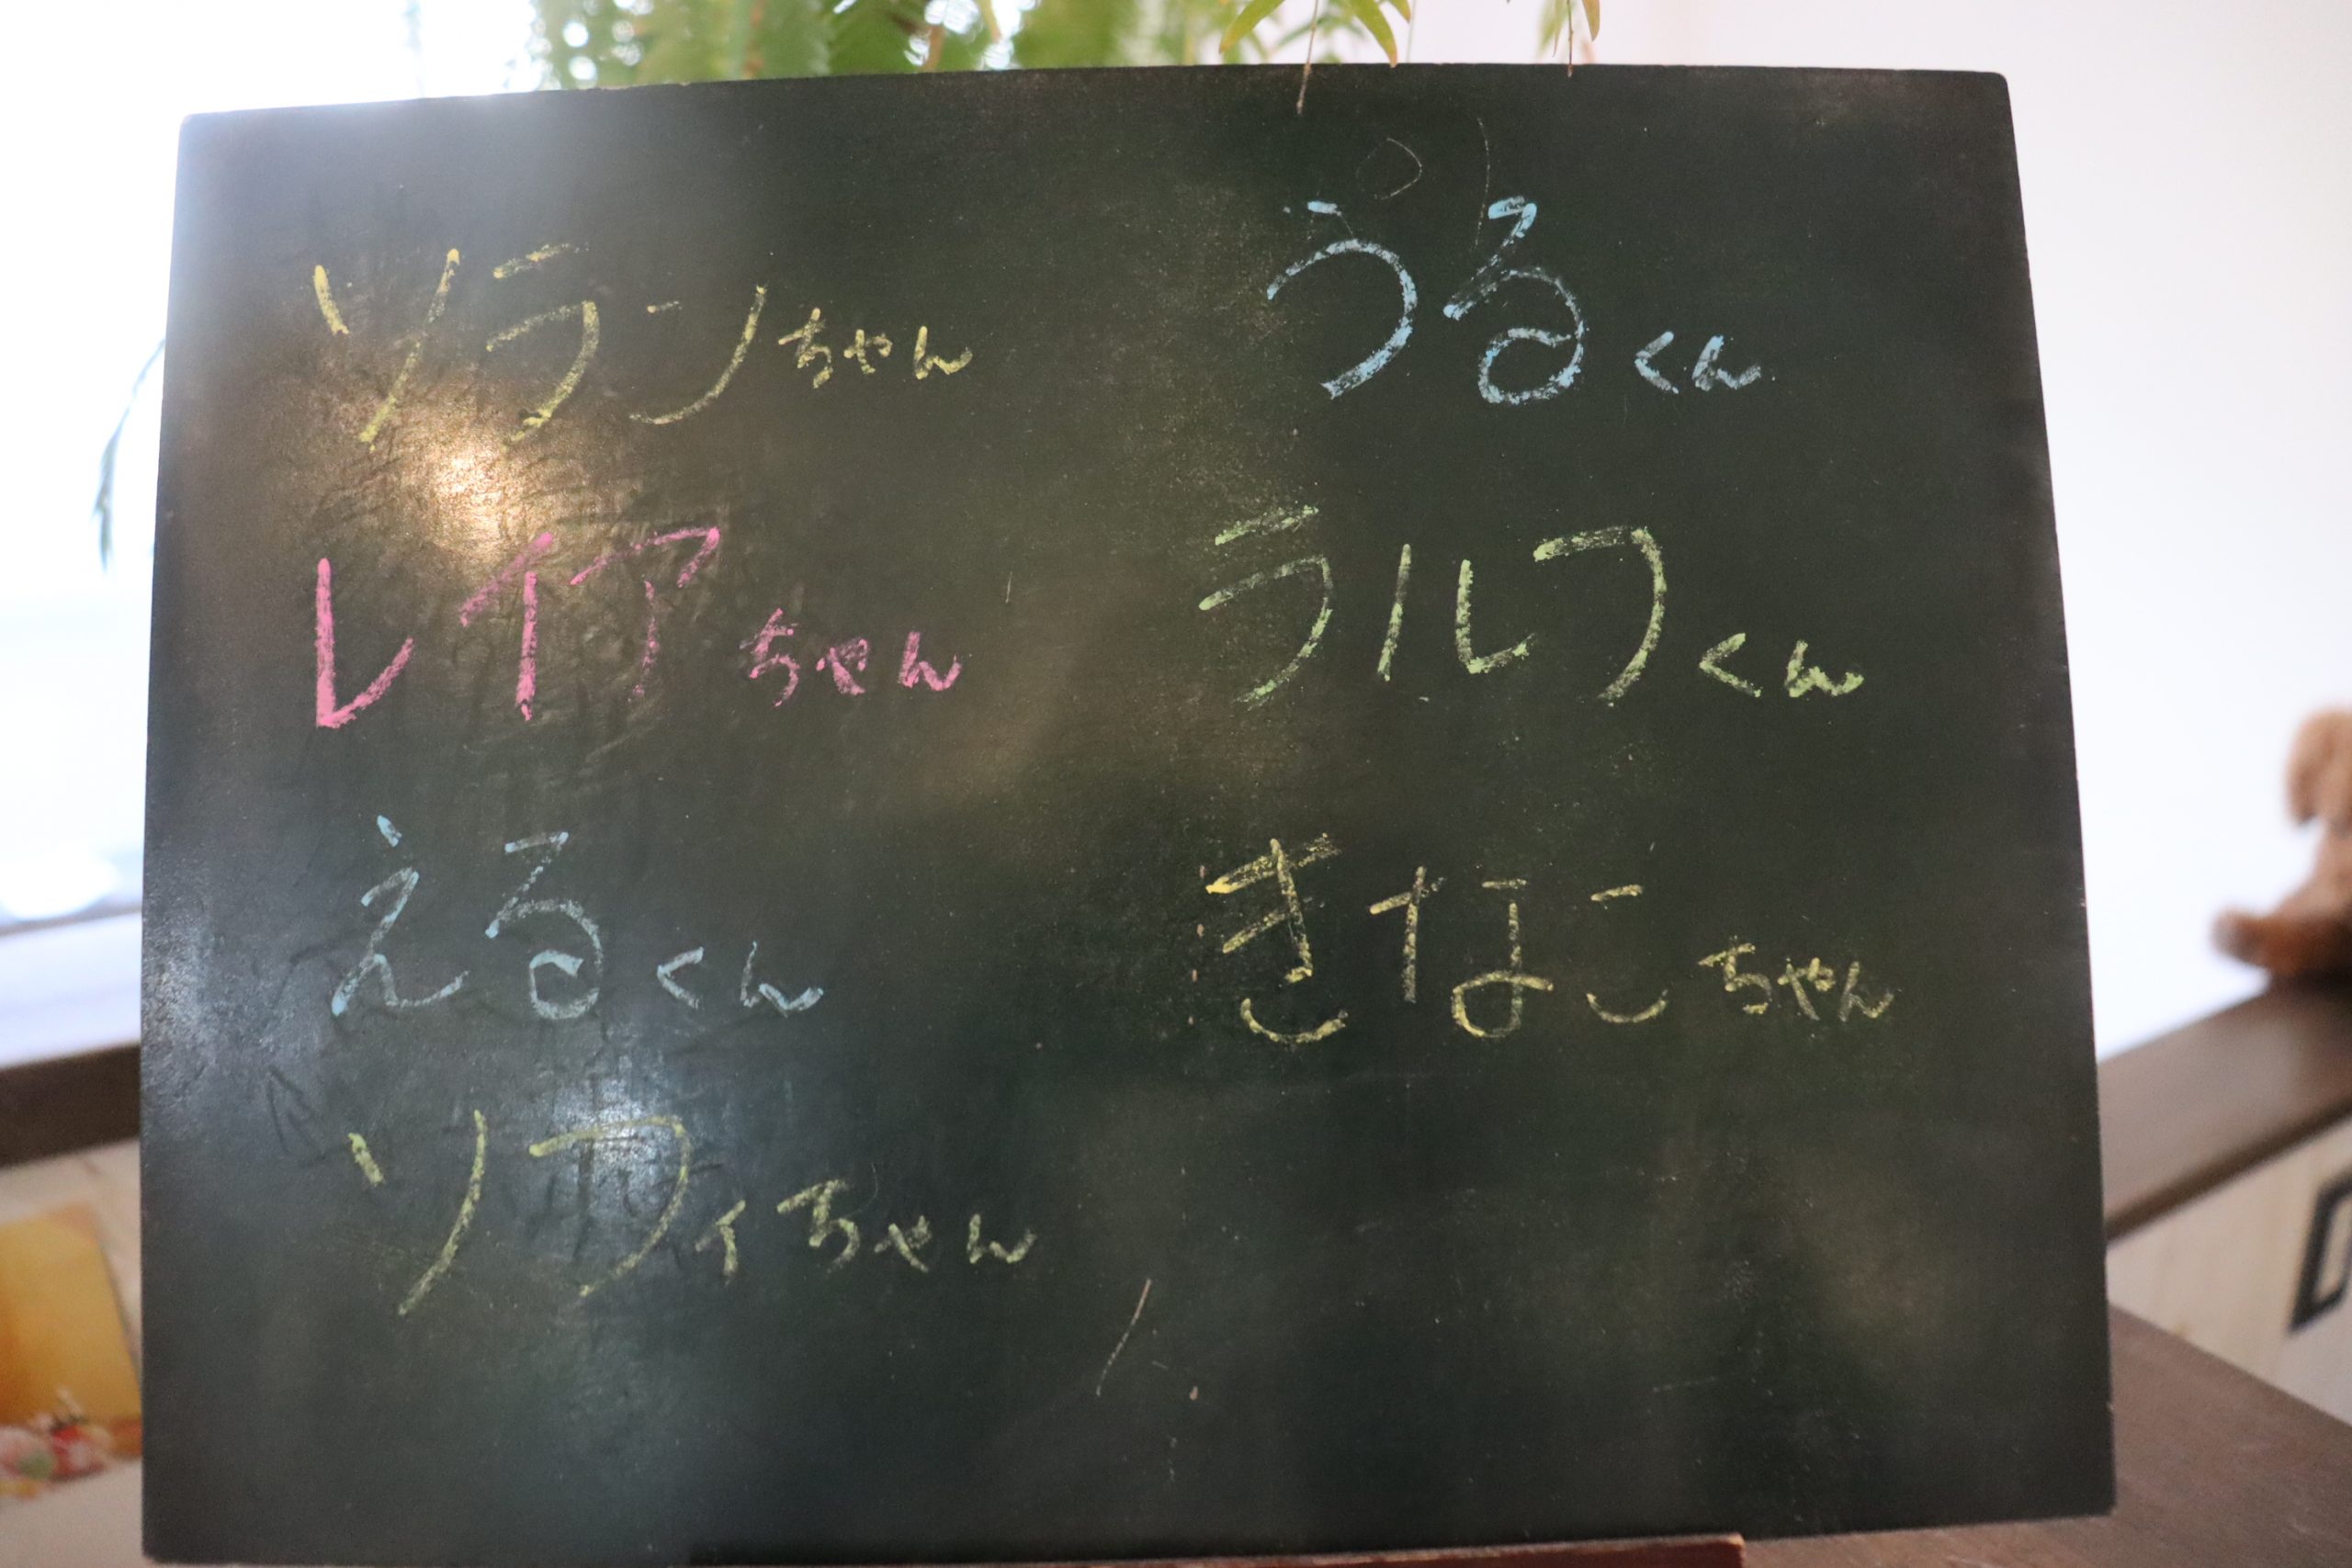 ソランちゃん
レイアちゃん
えるくん
ソフィちゃん
うるくん
ラルフくん
きなこちゃん